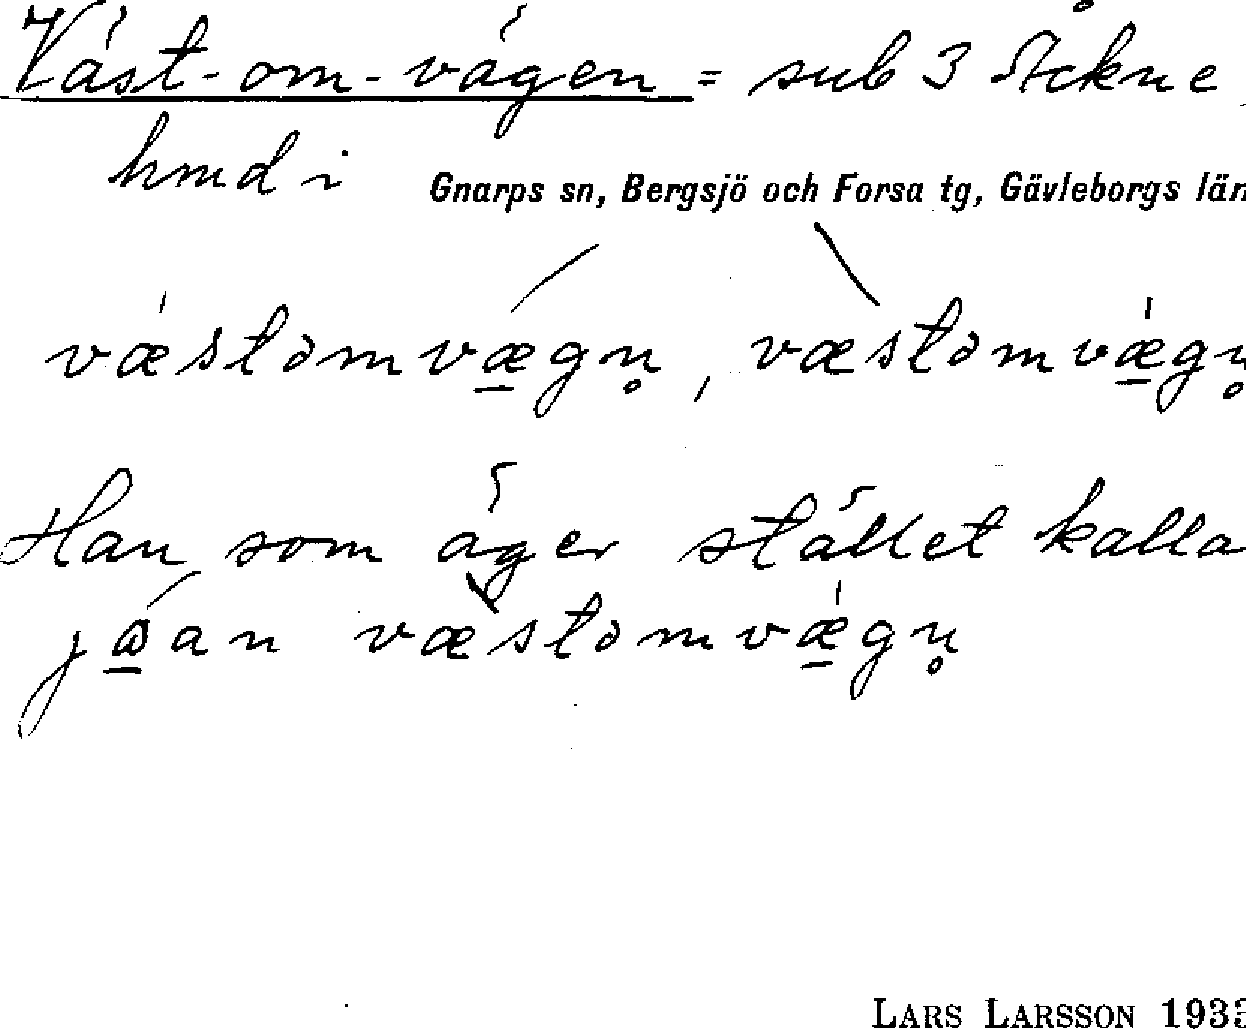 Väst-om-vägen = sub 3 Åckne
hmd i Gnarps sn, Bergsjö och Forsa tg, Gävleborgs län
væstomvægn̥, væstomvægn̥
Han som äger stället kalla
væstomvægn̥
LARS LARSSON 193